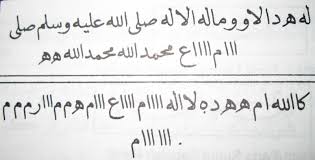 له هد الا ووماله الا له صلى الله عليه وسلم صلى
ا ا م ا ا ا ا ع محمد الله محمد الله هو
كا الله ام هو هد ه لا اله ا ا ا ا م ا ا ا ا ع ا ا ا م هو م م ا ا ر م م م
ا ا ا ا ا م .